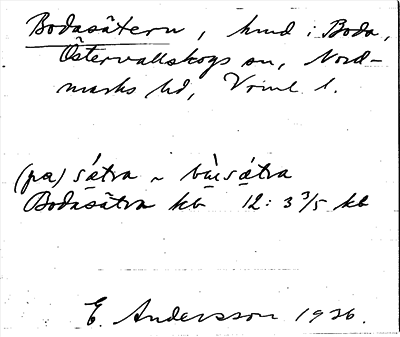 Bodasätern, hmd i Boda,
Östervallskogs sn, Nord-
marks hd, Vrml l.
(pa) sátra ~ bùsátra
Bodasätra kb 12: 3 3/5 kb
E. Andersson 1926.